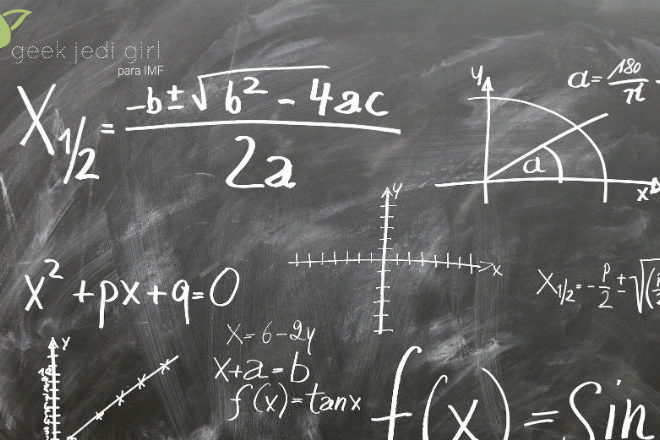 geek jedi girl
para IMF
X1/2 = -b±√b² - 4ac / 2a
y
a = 180 / π
a
x
y
x
x² + px + q = 0
X1/2 = - p/2 ± √(p
x = 6 - 2y
x + a = b
f(x) = tanx
y
f(x) = Sin